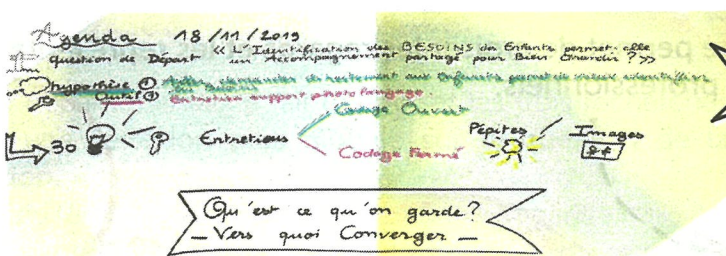 Agenda 18/11/2019
question de Départ « L'Identification des BESOINS des Enfants permet-elle
un Accompagnement partagé pour Bien Grandir ? »
hypothèse ① demander directement aux Enfants permet de mieux identifier
les Besoins
Outil ② Entretien support photo langage.
30 Entretiens
Codage Ouvert
Codage Fermé
Pépites
Images
Qu'est ce qu'on garde ?
— Vers quoi Converger —